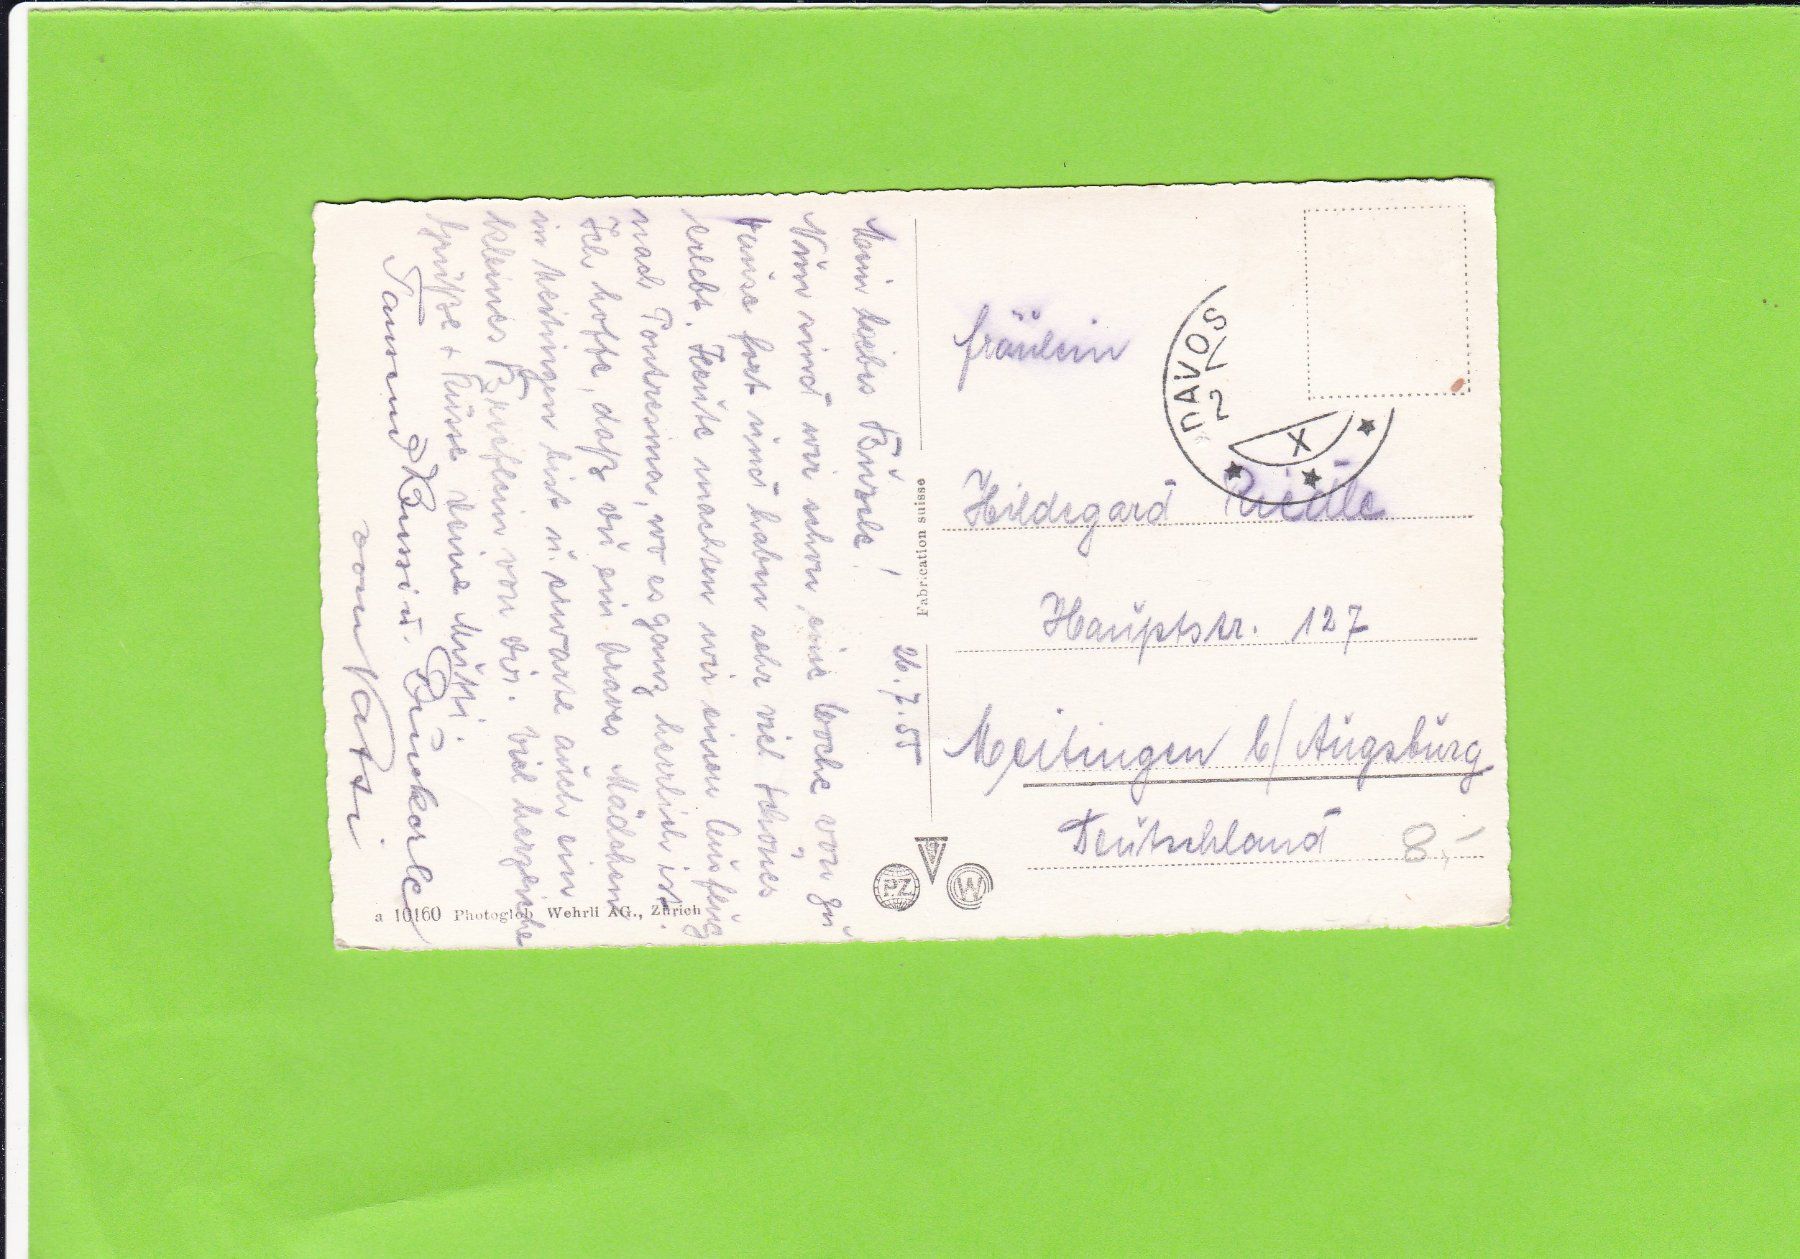 26.7.55
Mein liebes Bürzele!
Nun sind wir schon eine Woche von zu
Hause fort und haben sehr viel schönes
erlebt. Heute machten wir einen Ausflug
nach Pontresina, wo es ganz herrlich ist.
Ich hoffe, daß du ein braves Mädchen
in Meitingen bist u. erwarte auch ein
kleines Brieflein von dir. Viel herzliche
Grüße + Küsse deine Mutti.
Tausend Bussi u.
von Vati
Fräulein
Hildegard Riedle
Hauptstr. 127
Meitingen b/ Augsburg
Deutschland
8,-
DAVOS
2
X
Fabrication suisse
PZ
W
a 10160 Photoglob Wehrli AG., Zürich